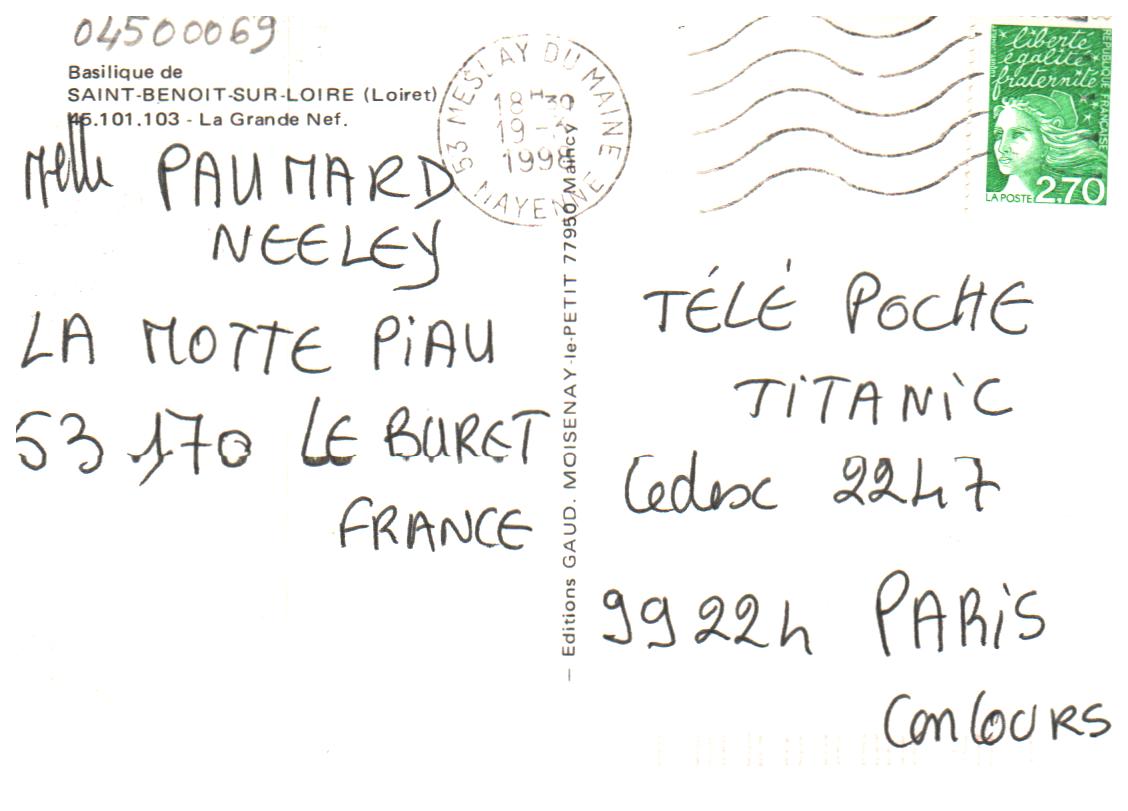 04500069
Basilique de
SAINT-BENOIT-SUR-LOIRE (Loiret)
45.101.103 - La Grande Nef.
Melle PAUMARD
NEELEY
LA MOTTE PiAU
53 170 LE BURET
FRANCE
— Editions GAUD. MOISENAY-le-PETIT 77950 Maincy
53 MESLAY DU MAINE
18H30
19 -
1998
MAYENNE
liberté
égalité
fraternité
RÉPUBLIQUE FRANÇAISE
LA POSTE 2,70
TÉLÉ POCHE
TiTANiC
Cedex 2247
99224 PARiS
ConCOURS